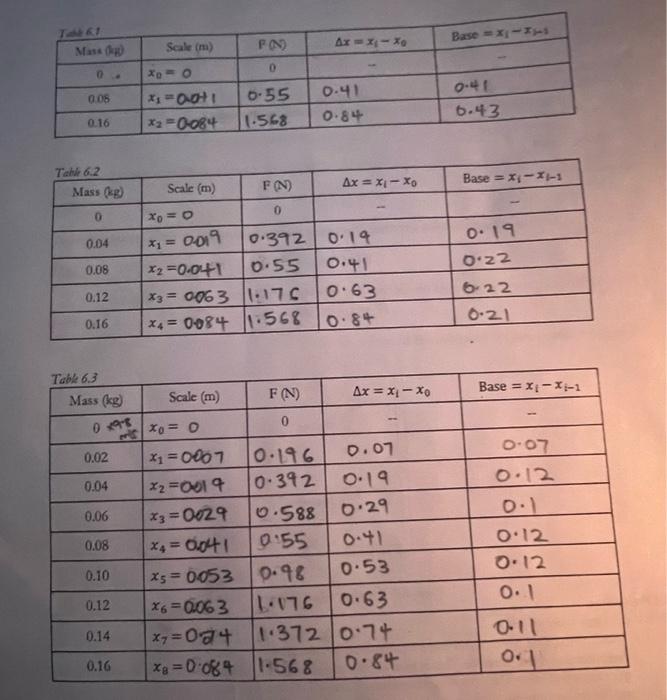 Table 6.1
Mass (kg) Scale (m) F (N) Δx = xᵢ − x₀ Base = xᵢ − xᵢ₋₁
0 x₀ = 0 0 -- --
0.08 x₁ = 0.041 0.55 0.41 0.41
0.16 x₂ = 0.084 1.568 0.84 0.43
Table 6.2
Mass (kg) Scale (m) F (N) Δx = xᵢ − x₀ Base = xᵢ − xᵢ₋₁
0 x₀ = 0 0 -- --
0.04 x₁ = 0.019 0.392 0.19 0.19
0.08 x₂ = 0.041 0.55 0.41 0.22
0.12 x₃ = 0.063 1.176 0.63 0.22
0.16 x₄ = 0.084 1.568 0.84 0.21
Table 6.3
Mass (kg) Scale (m) F (N) Δx = xᵢ − x₀ Base = xᵢ − xᵢ₋₁
0 x₀ = 0 0 -- --
0.02 x₁ = 0.007 0.196 0.07 0.07
0.04 x₂ = 0.019 0.392 0.19 0.12
0.06 x₃ = 0.029 0.588 0.29 0.1
0.08 x₄ = 0.041 0.55 0.41 0.12
0.10 x₅ = 0.053 0.98 0.53 0.12
0.12 x₆ = 0.063 1.176 0.63 0.1
0.14 x₇ = 1.372 0.74 0.11
0.16 x₈ = 0.084 1.568 0.84 0.1